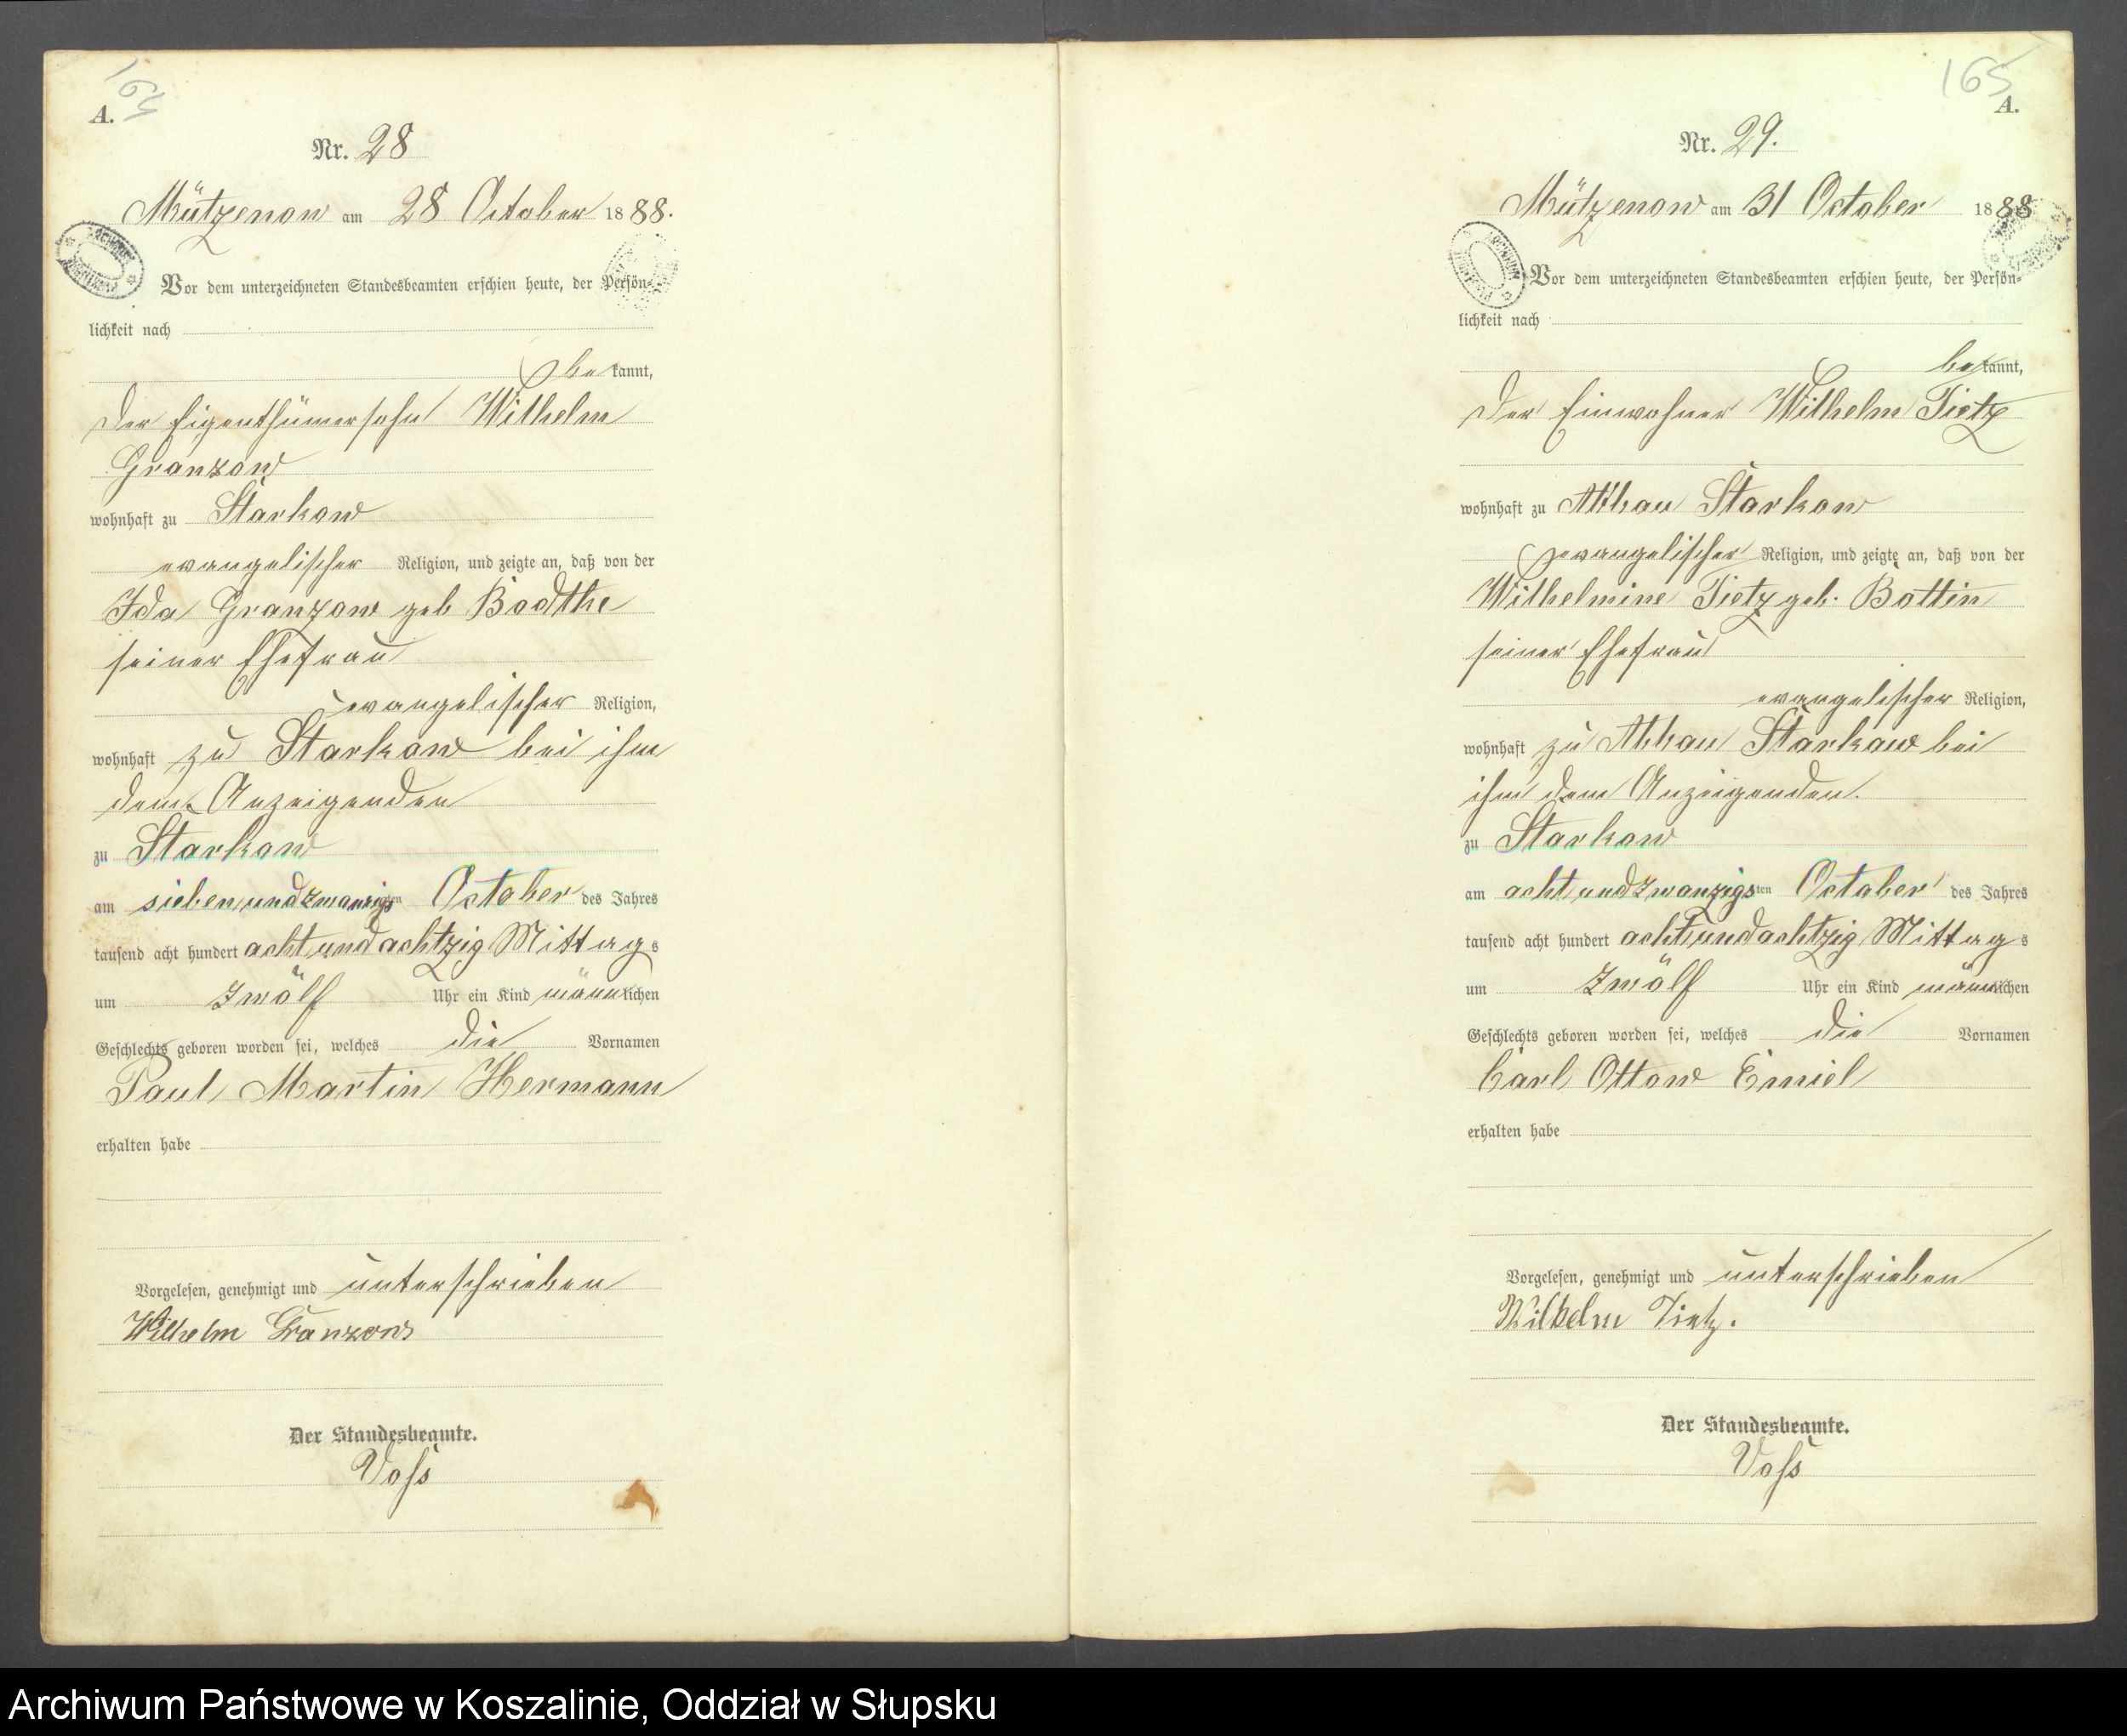 164
A.
Nr. 28
Mützenow am 28 October 1888.
Vor dem unterzeichneten Standesbeamten erschien heute, der Persön-
lichkeit nach
bekannt,
der Eigenthümersohn Wilhelm
Granzow
wohnhaft zu Starkow
evangelischer Religion, und zeigte an, daß von der
Ida Granzow geb Badthe
seiner Ehefrau
evangelischer Religion,
wohnhaft zu Starkow bei ihm
dem Anzeigenden
zu Starkow
am siebenundzwanzigsten October des Jahres
tausend acht hundert achtundachtzig Mittags
um zwölf Uhr ein Kind männlichen
Geschlechts geboren worden sei, welches die Vornamen
Paul Martin Hermann
erhalten habe
Vorgelesen, genehmigt und unterschrieben
Wilhelm Granzow
Der Standesbeamte.
Voss
165
A.
Nr. 29.
Mützenow am 31 October 1888
Vor dem unterzeichneten Standesbeamten erschien heute, der Persön-
lichkeit nach
bekannt,
der Einwohner Wilhelm Tietz
wohnhaft zu Abbau Starkow
evangelischer Religion, und zeigte an, daß von der
Wilhelmine Tietz geb. Bottin
seiner Ehefrau
evangelischer Religion,
wohnhaft zu Abbau Starkow bei
ihm dem Anzeigenden.
zu Starkow
am achtundzwanzigsten October des Jahres
tausend acht hundert achtundachtzig Mittags
um zwölf Uhr ein Kind männlichen
Geschlechts geboren worden sei, welches die Vornamen
Carl Ottow Emiel
erhalten habe
Vorgelesen, genehmigt und unterschrieben
Wilhelm Tietz.
Der Standesbeamte.
Voss
Archiwum Państwowe w Koszalinie, Oddział w Słupsku